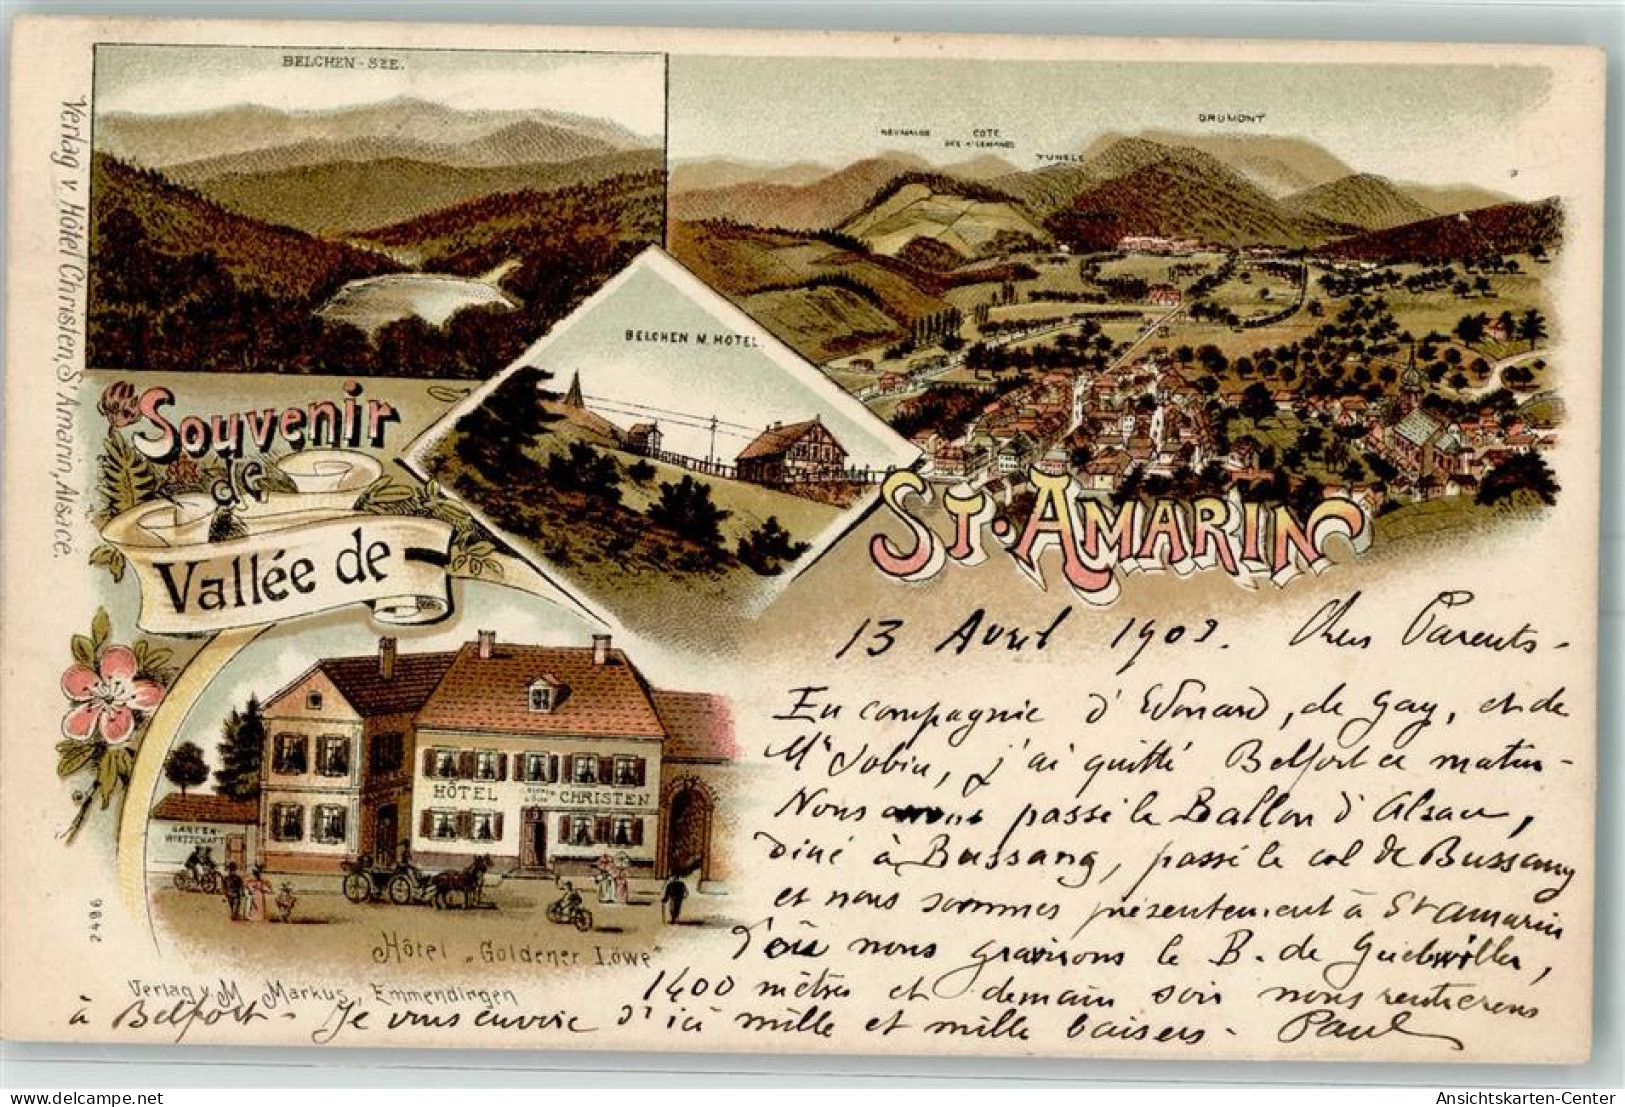 BELCHEN-SEE.
NEUWALDE
COTE
TUNELE
DRUMONT
BELCHEN M. HOTEL.
Verlag v. Hôtel Christen, St Amarin, Alsace.
Souvenir
de
Vallée de
ST. AMARIN
HÔTEL CHRISTEN
GARTEN-
WIRTSCHAFT
2486
Hôtel „Goldener Löwe"
Verlag v. M. Markus, Emmendingen
13 Avril 1903. Chers Parents -
En compagnie d'Edouard, de Gay, et de
Mr Jobin, j'ai quitté Belfort ce matin -
Nous avons passé le Ballon d'Alsace,
diné à Bussang, passé le col de Bussang
et nous sommes présentement à St Amarin
d'où nous gravirons le B. de Guebwiller,
1400 mètres et demain soir nous rentrerons
à Belfort - Je vous envoie d'ici mille et mille baisers - Paul
Ansichtskarten-Center